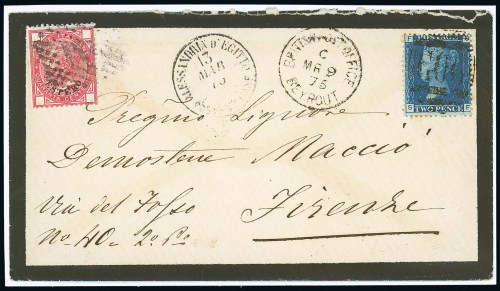 ALESSANDRIA D'EGITTO
13
MAR
75
BRITISH POST OFFICE
C
MR 9
75
BEYROUT
TWO PENCE
S E
Pregmo Signore
Demostene Macciò
Via del Fosso
No 40. 2o Po
Firenze